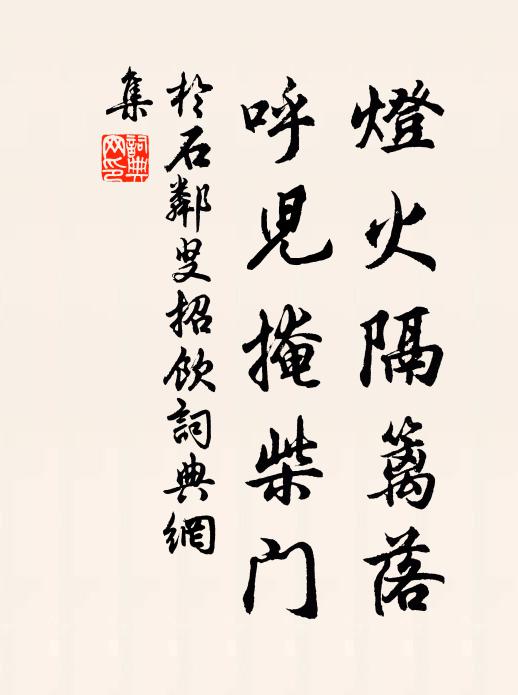 燈火隔篱落
呼児掩柴门
於石鄰叟招飲詞典網
集
詞典
网印